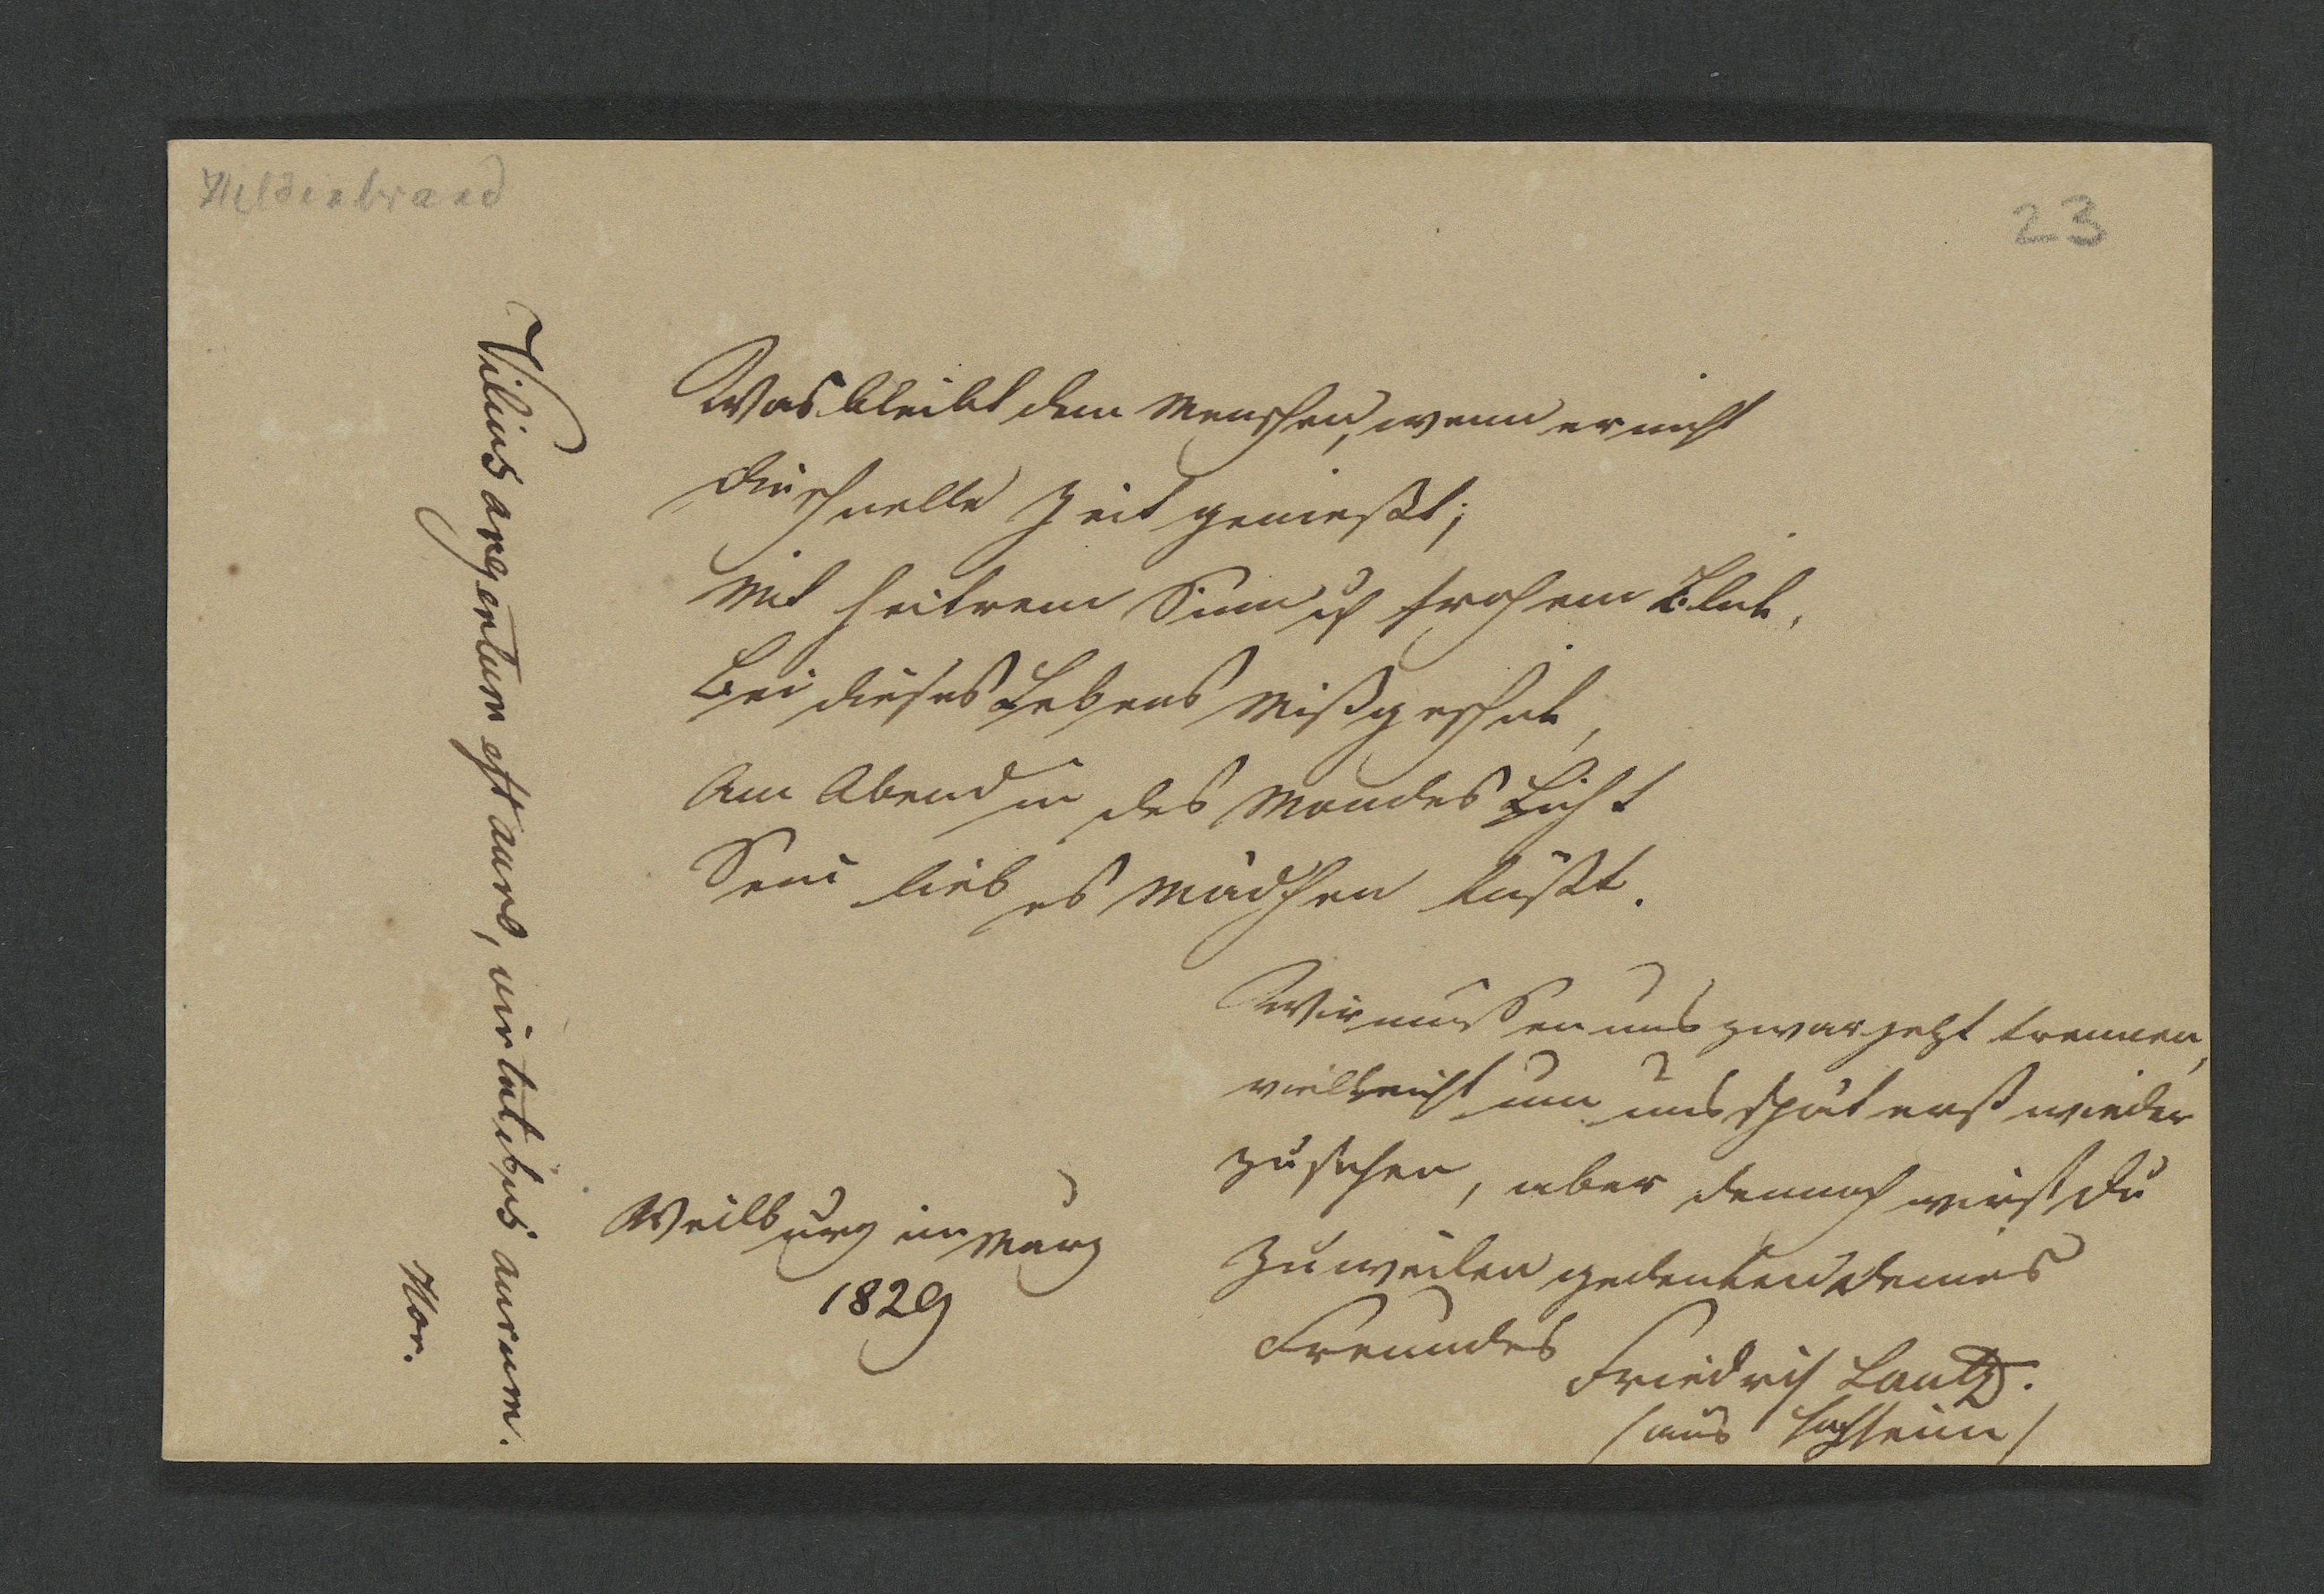 Hildenbrand
23
Was bleibt dem Menschen, wenn er nicht
Die schnelle Zeit genießt;
Mit heitrem Sinn u frohem Blick,
Bei dieses Lebens Mißgeschick,
Am Abend in des Mondes Licht
Sein liebes Mädchen küßt.
Wir müssen uns zwar jetzt trennen,
vielleicht um uns spät erst wieder
zusehen, aber dennoch wirst Du
zuweilen gedenken Deines
Freundes
Friedrich Lautz.
/aus Hochheim/
Weilburg im März
1829
Vilius argentum est auro, virtutibus aurum.
Hor.